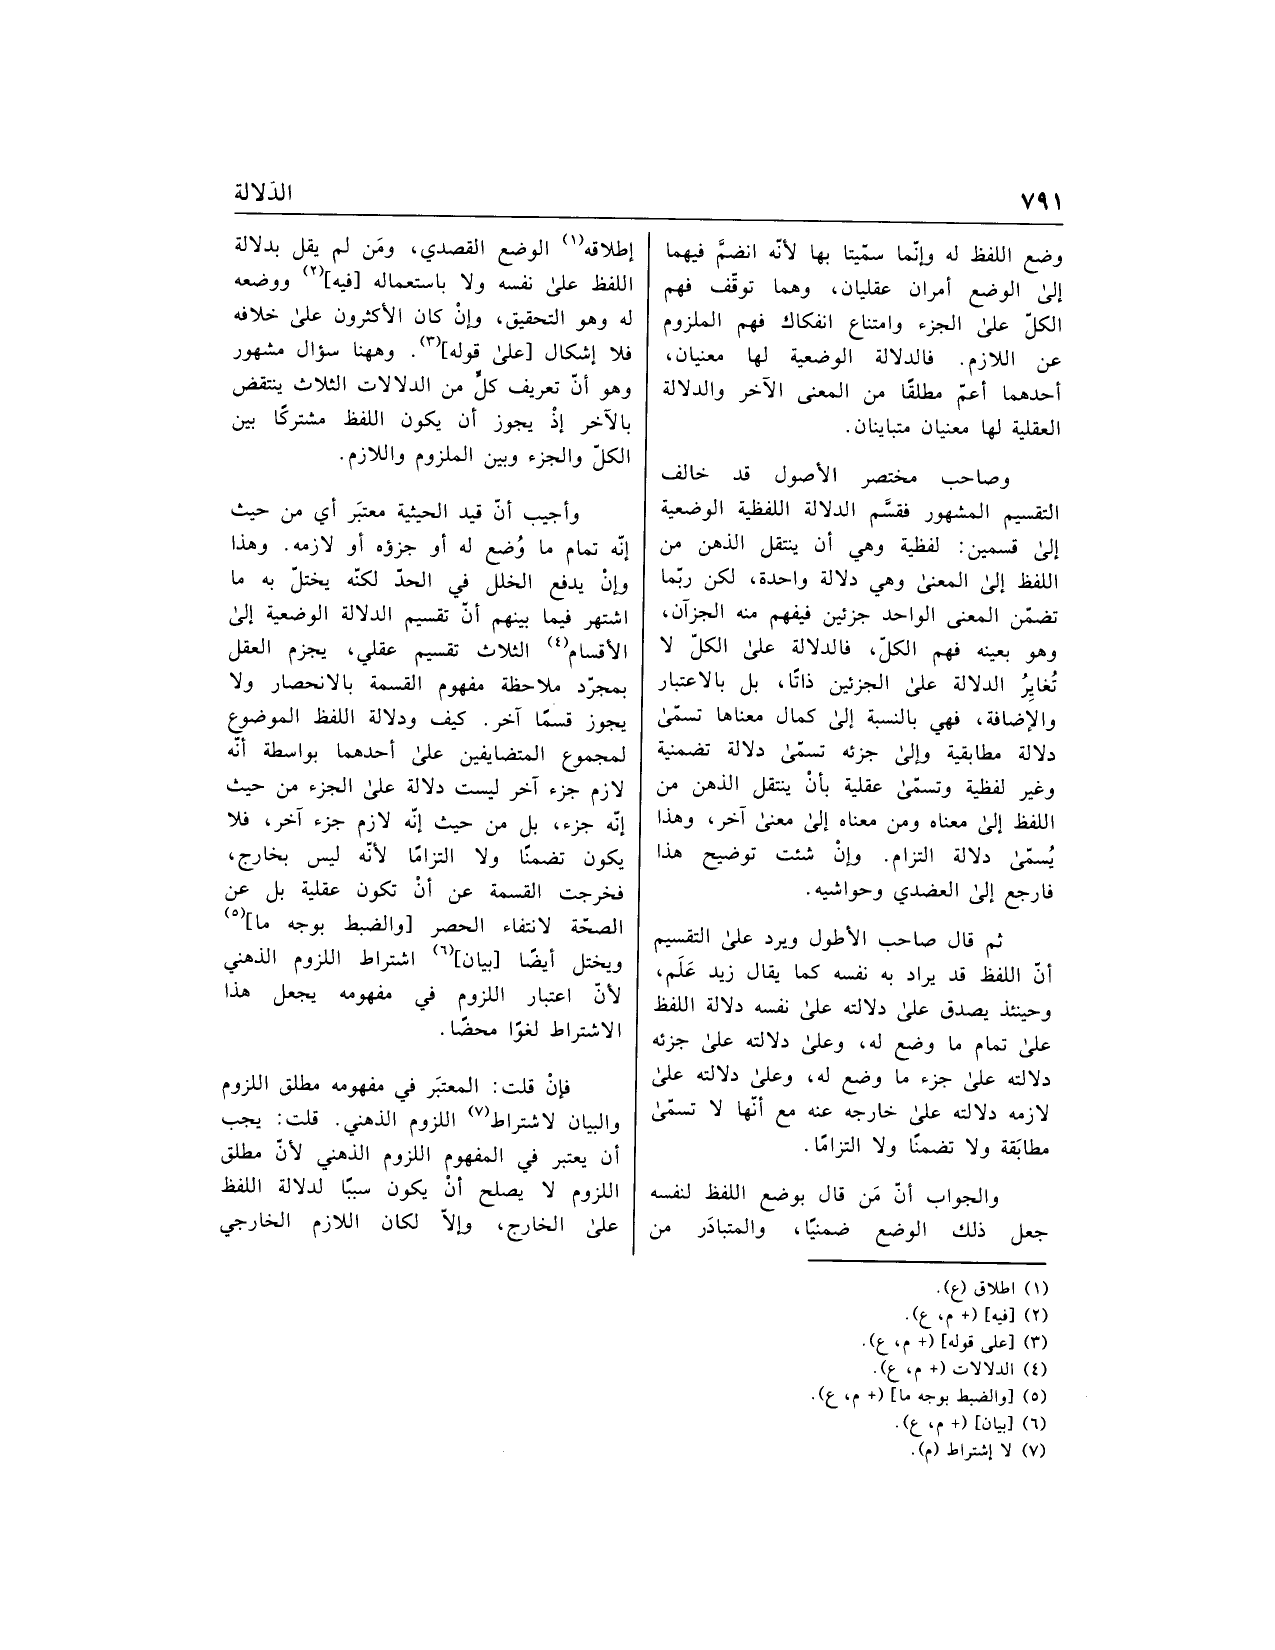 ٧٩١
الدَلالة
وضع اللفظ له وإنّما سمّيتا بها لأنّه انضمَّ فيهما
إلىٰ الوضع أمران عقليان، وهما توقّف فهم
الكلّ علىٰ الجزء وامتناع انفكاك فهم الملزوم
عن اللازم. فالدلالة الوضعية لها معنيان،
أحدهما أعمّ مطلقًا من المعنى الآخر والدلالة
العقلية لها معنيان متباينان.
وصاحب مختصر الأصول قد خالف
التقسيم المشهور فقسَّم الدلالة اللفظية الوضعية
إلىٰ قسمين: لفظية وهي أن ينتقل الذهن من
اللفظ إلىٰ المعنىٰ وهي دلالة واحدة، لكن ربّما
تضمّن المعنى الواحد جزئين فيفهم منه الجزآن،
وهو بعينه فهم الكلّ، فالدلالة علىٰ الكلّ لا
تُغايِرُ الدلالة علىٰ الجزئين ذاتًا، بل بالاعتبار
والإضافة، فهي بالنسبة إلىٰ كمال معناها تسمّىٰ
دلالة مطابقية وإلىٰ جزئه تسمّىٰ دلالة تضمنية
وغير لفظية وتسمّىٰ عقلية بأنْ ينتقل الذهن من
اللفظ إلىٰ معناه ومن معناه إلىٰ معنىٰ آخر، وهذا
يُسمّىٰ دلالة التزام. وإنْ شئت توضيح هذا
فارجع إلىٰ العضدي وحواشيه.
ثم قال صاحب الأطول ويرد علىٰ التقسيم
أنّ اللفظ قد يراد به نفسه كما يقال زيد عَلَم،
وحينئذ يصدق علىٰ دلالته علىٰ نفسه دلالة اللفظ
علىٰ تمام ما وضع له، وعلىٰ دلالته علىٰ جزئه
دلالته علىٰ جزء ما وضع له، وعلىٰ دلالته علىٰ
لازمه دلالته علىٰ خارجه عنه مع أنّها لا تسمّىٰ
مطابَقة ولا تضمنًا ولا التزامًا.
والجواب أنّ مَن قال بوضع اللفظ لنفسه
جعل ذلك الوضع ضمنيًا، والمتبادَر من
إطلاقه(١) الوضع القصدي، ومَن لم يقل بدلالة
اللفظ علىٰ نفسه ولا باستعماله [فيه](٢) ووضعه
له وهو التحقيق، وإنْ كان الأكثرون علىٰ خلافه
فلا إشكال [علىٰ قوله](٣). وههنا سؤال مشهور
وهو أنّ تعريف كلٍّ من الدلالات الثلاث ينتقض
بالآخر إذْ يجوز أن يكون اللفظ مشتركًا بين
الكلّ والجزء وبين الملزوم واللازم.
وأجيب أنّ قيد الحيثية معتبَر أي من حيث
إنّه تمام ما وُضع له أو جزؤه أو لازمه. وهذا
وإنْ يدفع الخلل في الحدّ لكنّه يختلّ به ما
اشتهر فيما بينهم أنّ تقسيم الدلالة الوضعية إلىٰ
الأقسام(٤) الثلاث تقسيم عقلي، يجزم العقل
بمجرّد ملاحظة مفهوم القسمة بالانحصار ولا
يجوز قسمًا آخر. كيف ودلالة اللفظ الموضوع
لمجموع المتضايفين علىٰ أحدهما بواسطة أنّه
لازم جزء آخر ليست دلالة علىٰ الجزء من حيث
إنّه جزء، بل من حيث إنّه لازم جزء آخر، فلا
يكون تضمنًا ولا التزامًا لأنّه ليس بخارج،
فخرجت القسمة عن أنْ تكون عقلية بل عن
الصحّة لانتفاء الحصر [والضبط بوجه ما](٥)
ويختل أيضًا [بيان](٦) اشتراط اللزوم الذهني
لأنّ اعتبار اللزوم في مفهومه يجعل هذا
الاشتراط لغوًا محضًا.
فإنْ قلت: المعتبَر في مفهومه مطلق اللزوم
والبيان لاشتراط(٧) اللزوم الذهني. قلت: يجب
أن يعتبر في المفهوم اللزوم الذهني لأنّ مطلق
اللزوم لا يصلح أنْ يكون سببًا لدلالة اللفظ
علىٰ الخارج، وإلاّ لكان اللازم الخارجي
(١) اطلاق (ع).
(٢) [فيه] (+ م، ع).
(٣) [على قوله] (+ م، ع).
(٤) الدلالات (+ م، ع).
(٥) [والضبط بوجه ما] (+ م، ع).
(٦) [بيان] (+ م، ع).
(٧) لا إشتراط (م).